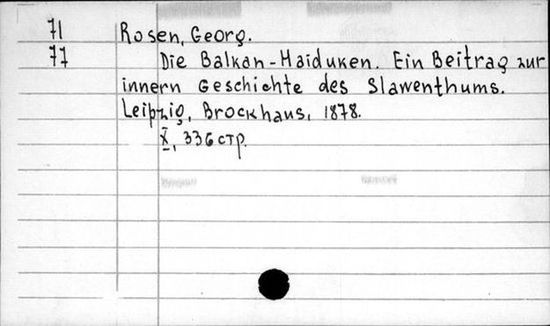 71 Rosen, Georg.
77 Die Balkan-Haiduken. Ein Beitrag zur
innern Geschichte des Slawenthums.
Leipzig, Brockhaus, 1878.
X, 336 стр.